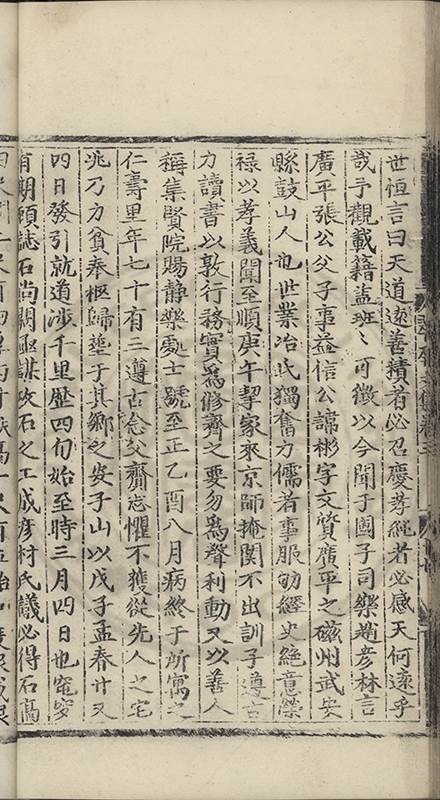 世恒言曰天道逺善積者必召慶孝純者必感天何逺乎
哉予觀載籍葢班〻可徴以今聞于國子司樂趙彦林言
廣平張公父子事益信公諱彬字文質廣平之磁州武安
縣鼓山人也世業冶氏獨奮力儒者事服勤經史絶意榮
禄以孝義聞至順庚午挈家來京師掩関不出訓子遵古
力讀書以敦行務實爲修齊之要勿爲聲利動又以善人
稱集賢院賜静樂處士號至正乙酉八月病終于所寓之
仁壽里年七十有三遵古念父齎志懼不獲從先人之宅
兆乃力貧奉柩歸塟于其鄉之安子山以戊子孟春廿又
四日發引就道涉千里歴四旬始至時三月四日也窀穸
有期顧誌石尚闕亟謀攻石之工成彦材氏議必得石高